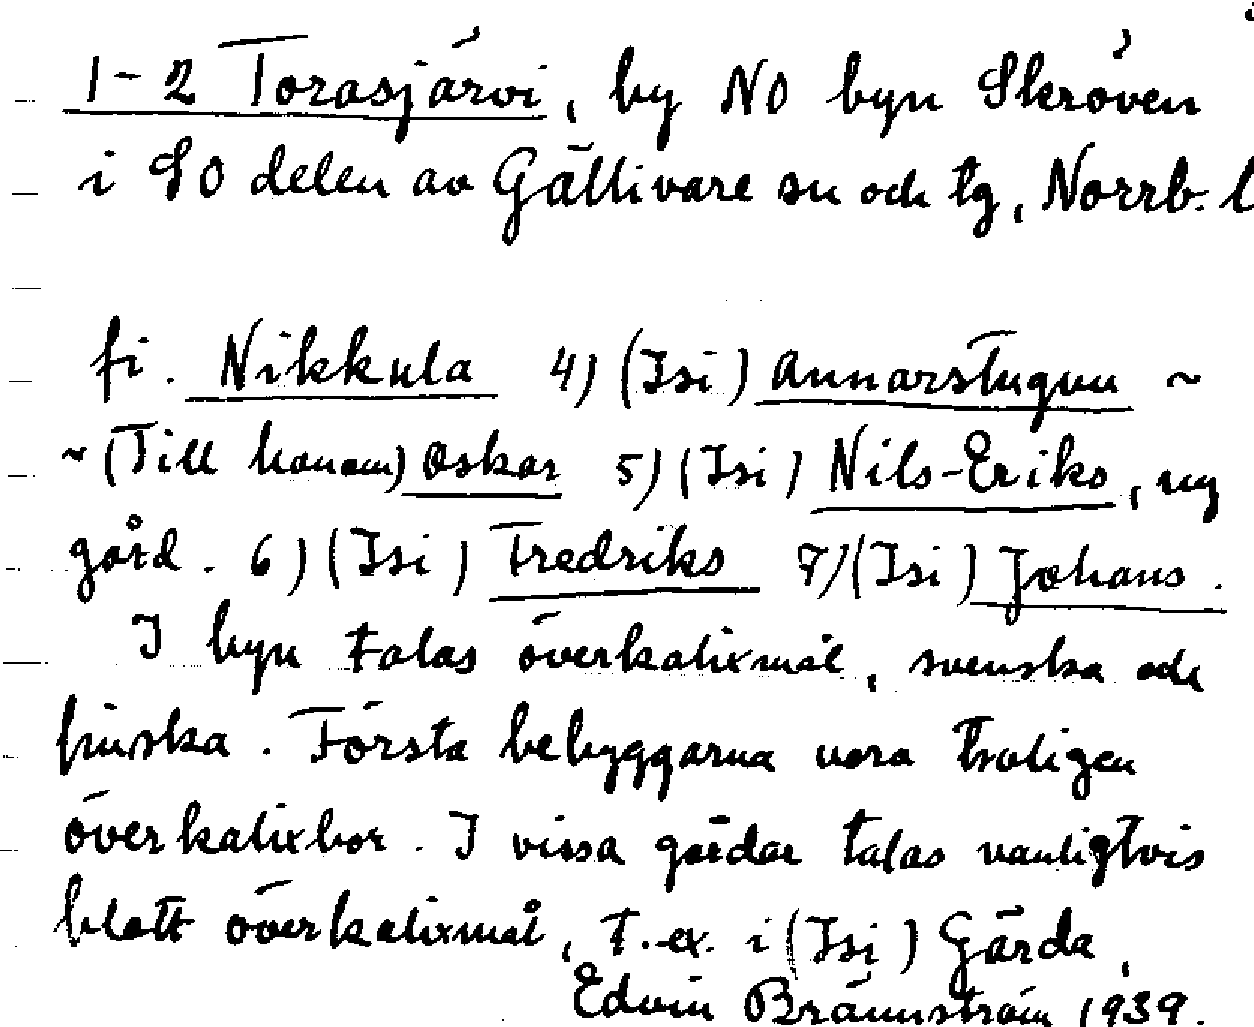 1-2 Torasjärvi, by NO byn Skröven
i SO delen av Gällivare sn och tg, Norrb. l
fi. Nikkula 4) (Isi) Annarstugun ~
~ (Till honom) Oskar 5) (Isi) Nils-Eriks, ny
gård. 6) (Isi) Fredriks 7) (Isi) Johans.
I byn talas överkalixmål, svenska och
finska. Första bebyggarna vora troligen
överkalixbor. I vissa gårdar talas vanligtvis
blott överkalixmål, t.ex. i (Isi) Gärda,
Edvin Brännström 1939.